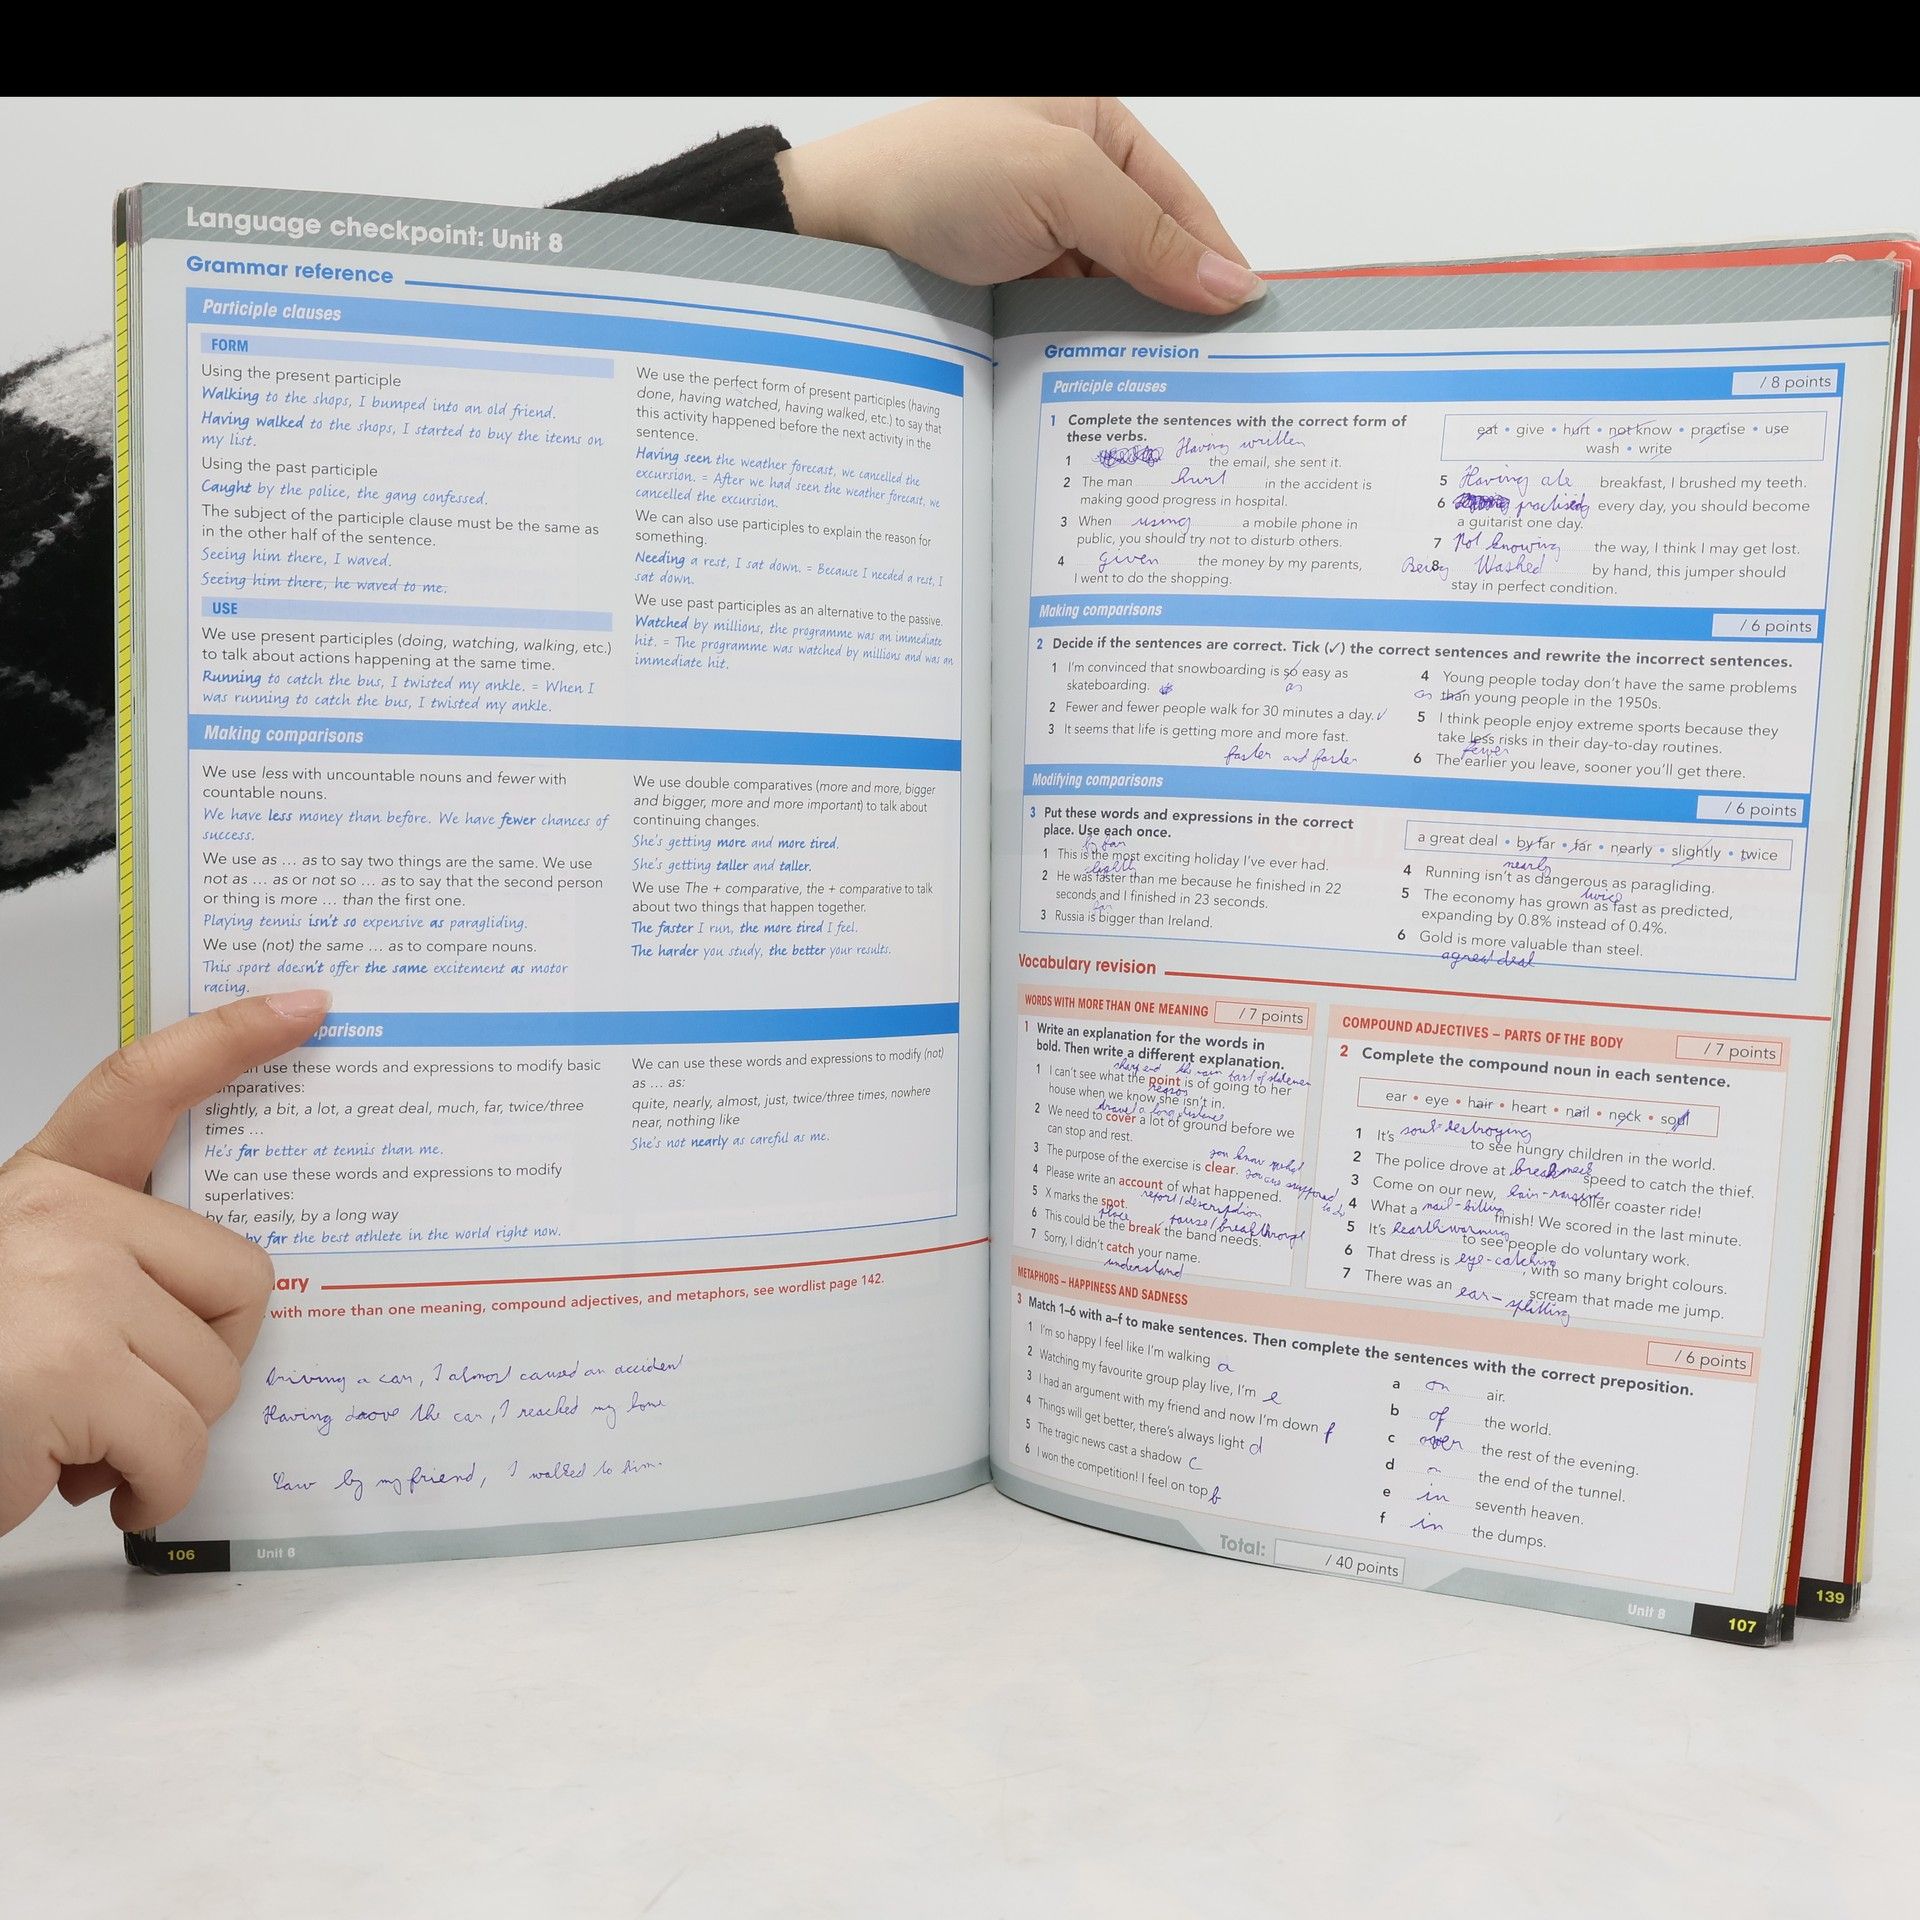 Language checkpoint: Unit 8
Grammar reference
Participle clauses
FORM
Using the present participle
Walking to the shops, I bumped into an old friend.
Having walked to the shops, I started to buy the items on
my list.
Using the past participle
Caught by the police, the gang confessed.
The subject of the participle clause must be the same as
in the other half of the sentence.
Seeing him there, I waved.
Seeing him there, he waved to me.
USE
We use present participles (doing, watching, walking, etc.)
to talk about actions happening at the same time.
Running to catch the bus, I twisted my ankle. = When I
was running to catch the bus, I twisted my ankle.
We use the perfect form of present participles (having
done, having watched, having walked, etc.) to say that
this activity happened before the next activity in the
sentence.
Having seen the weather forecast, we cancelled the
excursion. = After we had seen the weather forecast, we
cancelled the excursion.
We can also use participles to explain the reason for
something.
Needing a rest, I sat down. = Because I needed a rest, I
sat down.
We use past participles as an alternative to the passive.
Watched by millions, the programme was an immediate
hit. = The programme was watched by millions and was an
immediate hit.
Making comparisons
We use less with uncountable nouns and fewer with
countable nouns.
We have less money than before. We have fewer chances of
success.
We use as ... as to say two things are the same. We use
not as ... as or not so ... as to say that the second person
or thing is more ... than the first one.
Playing tennis isn't so expensive as paragliding.
We use (not) the same ... as to compare nouns.
This sport doesn't offer the same excitement as motor
racing.
We use double comparatives (more and more, bigger
and bigger, more and more important) to talk about
continuing changes.
She's getting more and more tired.
She's getting taller and taller.
We use The + comparative, the + comparative to talk
about two things that happen together.
The faster I run, the more tired I feel.
The harder you study, the better your results.
parisons
use these words and expressions to modify basic
mparatives:
slightly, a bit, a lot, a great deal, much, far, twice/three
times ...
He's far better at tennis than me.
We can use these words and expressions to modify
superlatives:
by far, easily, by a long way
by far the best athlete in the world right now.
We can use these words and expressions to modify (not)
as ... as:
quite, nearly, almost, just, twice/three times, nowhere
near, nothing like
She's not nearly as careful as me.
ary
with more than one meaning, compound adjectives, and metaphors, see wordlist page 142.
Driving a car, I almost caused an accident
Having drove the car, I reached my home
Saw by my friend, I walked to him.
106 Unit 8
Grammar revision
Participle clauses / 8 points
1 Complete the sentences with the correct form of
these verbs.
eat • give • hurt • not know • practise • use
wash • write
1 Having written the email, she sent it.
2 The man hurt in the accident is
making good progress in hospital.
3 When using a mobile phone in
public, you should try not to disturb others.
4 given the money by my parents,
I went to do the shopping.
5 Having ate breakfast, I brushed my teeth.
6 practising every day, you should become
a guitarist one day.
7 Not knowing the way, I think I may get lost.
8 Being Washed by hand, this jumper should
stay in perfect condition.
Making comparisons / 6 points
2 Decide if the sentences are correct. Tick (✓) the correct sentences and rewrite the incorrect sentences.
1 I'm convinced that snowboarding is so easy as
skateboarding. as
2 Fewer and fewer people walk for 30 minutes a day. ✓
3 It seems that life is getting more and more fast.
faster and faster
4 Young people today don't have the same problems
as than young people in the 1950s.
5 I think people enjoy extreme sports because they
take less risks in their day-to-day routines.
fewer
6 The earlier you leave, sooner you'll get there.
Modifying comparisons / 6 points
3 Put these words and expressions in the correct
place. Use each once.
a great deal • by far • far • nearly • slightly • twice
by far
1 This is the most exciting holiday I've ever had.
slightly
2 He was faster than me because he finished in 22
seconds and I finished in 23 seconds.
far
3 Russia is bigger than Ireland.
nearly
4 Running isn't as dangerous as paragliding.
twice
5 The economy has grown as fast as predicted,
expanding by 0.8% instead of 0.4%.
6 Gold is more valuable than steel.
a great deal
Vocabulary revision
WORDS WITH MORE THAN ONE MEANING / 7 points
1 Write an explanation for the words in
bold. Then write a different explanation.
sharp end the main part of statement
1 I can't see what the point is of going to her
reason
house when we know she isn't in.
travel a long distance
2 We need to cover a lot of ground before we
can stop and rest.
you know what
3 The purpose of the exercise is clear. you are supposed to do
4 Please write an account of what happened.
report/description
5 X marks the spot.
place pause/breakthrough
6 This could be the break the band needs.
7 Sorry, I didn't catch your name.
understand
COMPOUND ADJECTIVES – PARTS OF THE BODY / 7 points
2 Complete the compound noun in each sentence.
ear • eye • hair • heart • nail • neck • soul
1 It's soul-destroying to see hungry children in the world.
2 The police drove at break neck speed to catch the thief.
3 Come on our new, hair-raising roller coaster ride!
4 What a nail-biting finish! We scored in the last minute.
5 It's heartwarming to see people do voluntary work.
6 That dress is eye-catching, with so many bright colours.
7 There was an ear-splitting scream that made me jump.
METAPHORS – HAPPINESS AND SADNESS / 6 points
3 Match 1–6 with a–f to make sentences. Then complete the sentences with the correct preposition.
1 I'm so happy I feel like I'm walking a
2 Watching my favourite group play live, I'm e
3 I had an argument with my friend and now I'm down f
4 Things will get better, there's always light d
5 The tragic news cast a shadow c
6 I won the competition! I feel on top b
a on air.
b of the world.
c over the rest of the evening.
d on the end of the tunnel.
e in seventh heaven.
f in the dumps.
Total: / 40 points
Unit 8 107
139